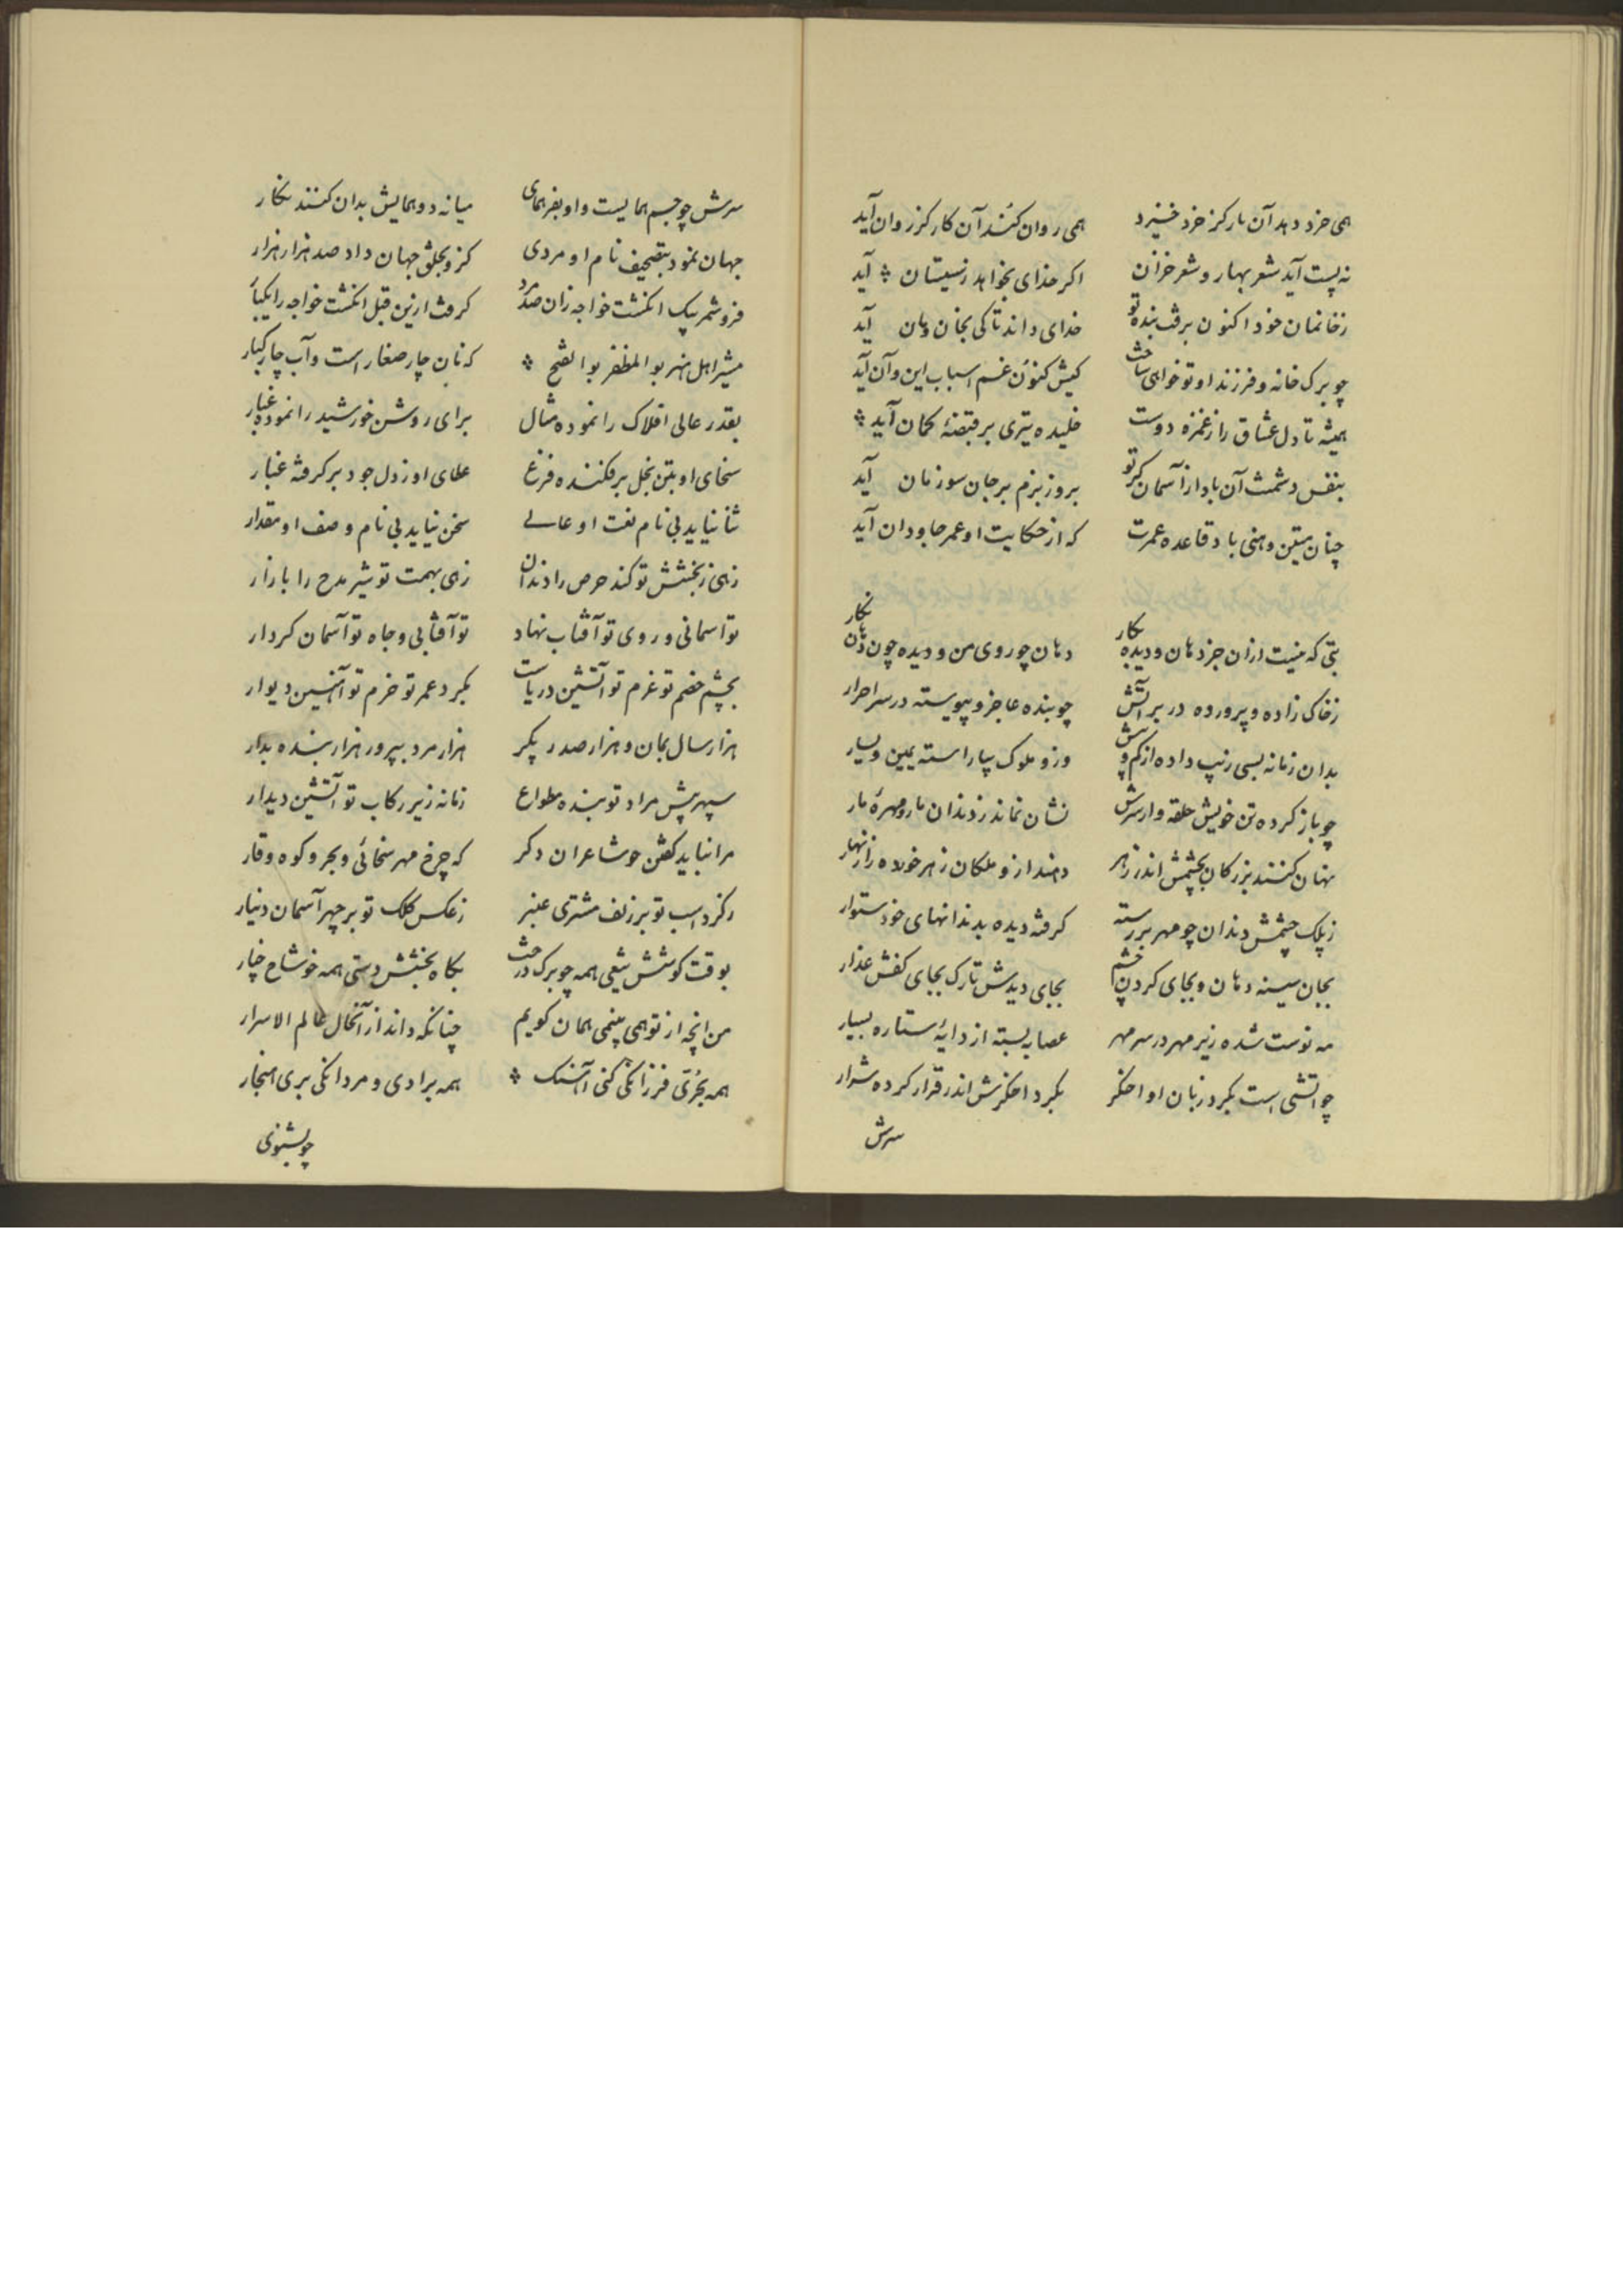 همی خرد دهد آن بار کز خرد خیزد همی روان کند آن کار کز روان آید
نه پست آید شعر بهار و شعر خزان اکر خدای بخواهد زنیستان آید
زخانمان خود اکنون برفت بنده تو خدای داند تا کی بخان و مان آید
چو برک خانه و فرزند او تو خواهی ساخت کیش کنون غم اسباب این و آن آید
همیشه تا دل عشاق را ز غمزه دوست خلیده تیری بر قبضهٔ کمان آید
بنفس دشمنت آن باد از آسمان کبر تو بروز بزم بر جان سوزنان آید
چنان متین و هنی باد قاعده عمرت که از حکایت او عمر جاودان آید
بتی که نیست ازان جز دهان و دیده بکار دهان چو روی من و دیده چون دهان نکار
زخاک زاده و پرورده در بر آتش چو بنده عاجز و پیوسته در سر احرار
بدان زمانه بسی زیب داده از کم و بیش وزو ملوک بیاراسته یمین و یسار
چو باز کرده تن خویش حلقه وار سرش نشان نماند ز دندان مار و مهرهٔ مار
نهان کنند بزرکان بچشمش اندر زهر دهند ازو ملکان زهر خورده را زنهار
زپلک چشمش دندان چو مهر بررسته کرفته دیده بدندانهای خود ستوار
بجان سینه دهان و بجای کردن چشم بجای دیدش تارک بجای کفش عذار
مه نوست شده زیر مهر در سر مهر عصابه بسته از دایهٔ ستاره بسیار
چو اتشی است بکرد زبان او اخکر بکرد اخکرش اندر قرار کرده شرار
سرش
سرش چو جسم همایست و او بفر همای میانه دو همایش بدان کنند نکار
جهان نمود بتصحیف نام او مردی کزو بخلق جهان داد صد هزار هزار
فرو شمر بیک انکشت خواجه زان صد مرد کرفت ازین قبل انکشت خواجه را یکبار
مشیر اهل هنر بو المظفر بو الفتح که نان چار صغار است و آب چار کبار
بقدر عالی افلاک را نموده مثال برای روشن خورشید را نموده غبار
سخای او بتن بخل برفکنده فزع عطای او ز دل جود برکرفته غبار
ثنا نیاید بی نام نعت او عالی سخن نیاید بی نام وصف او مقدار
زهی ز بخشش تو کند حرص را دندان زهی بهمت تو شیر مدح را بازار
تو آسمانی و روی تو آفتاب نهاد تو آفتابی و جاه تو آسمان کردار
بچشم خصم تو عزم تو آتشین دریاست بکرد عمر تو حزم تو آهنین دیوار
هزار سال بمان و هزار صدر بکر هزار مرد بپرور هزار بنده بدار
سپهر پیش مراد تو بنده مطواع زمانه زیر رکاب تو آتشین دیدار
مرا نباید کفتن چو شاعران دکر که چرخ مهر سخائی و بحر و کوه وقار
زکرد اسب تو بر زلف مشتری عنبر زعکس کلک تو بر چهر آسمان دینار
بوقت کوشش تیغی همه چو برک درخت بکاه بخشش دستی همه چو شاخ چنار
من انچه از تو همی بینمی همان کویم چنانکه داند از آنحال عالم الاسرار
همه بحرّی فرزانکی کنی آهنک همه برادی و مردانکی بری هنجار
چو بشنوی